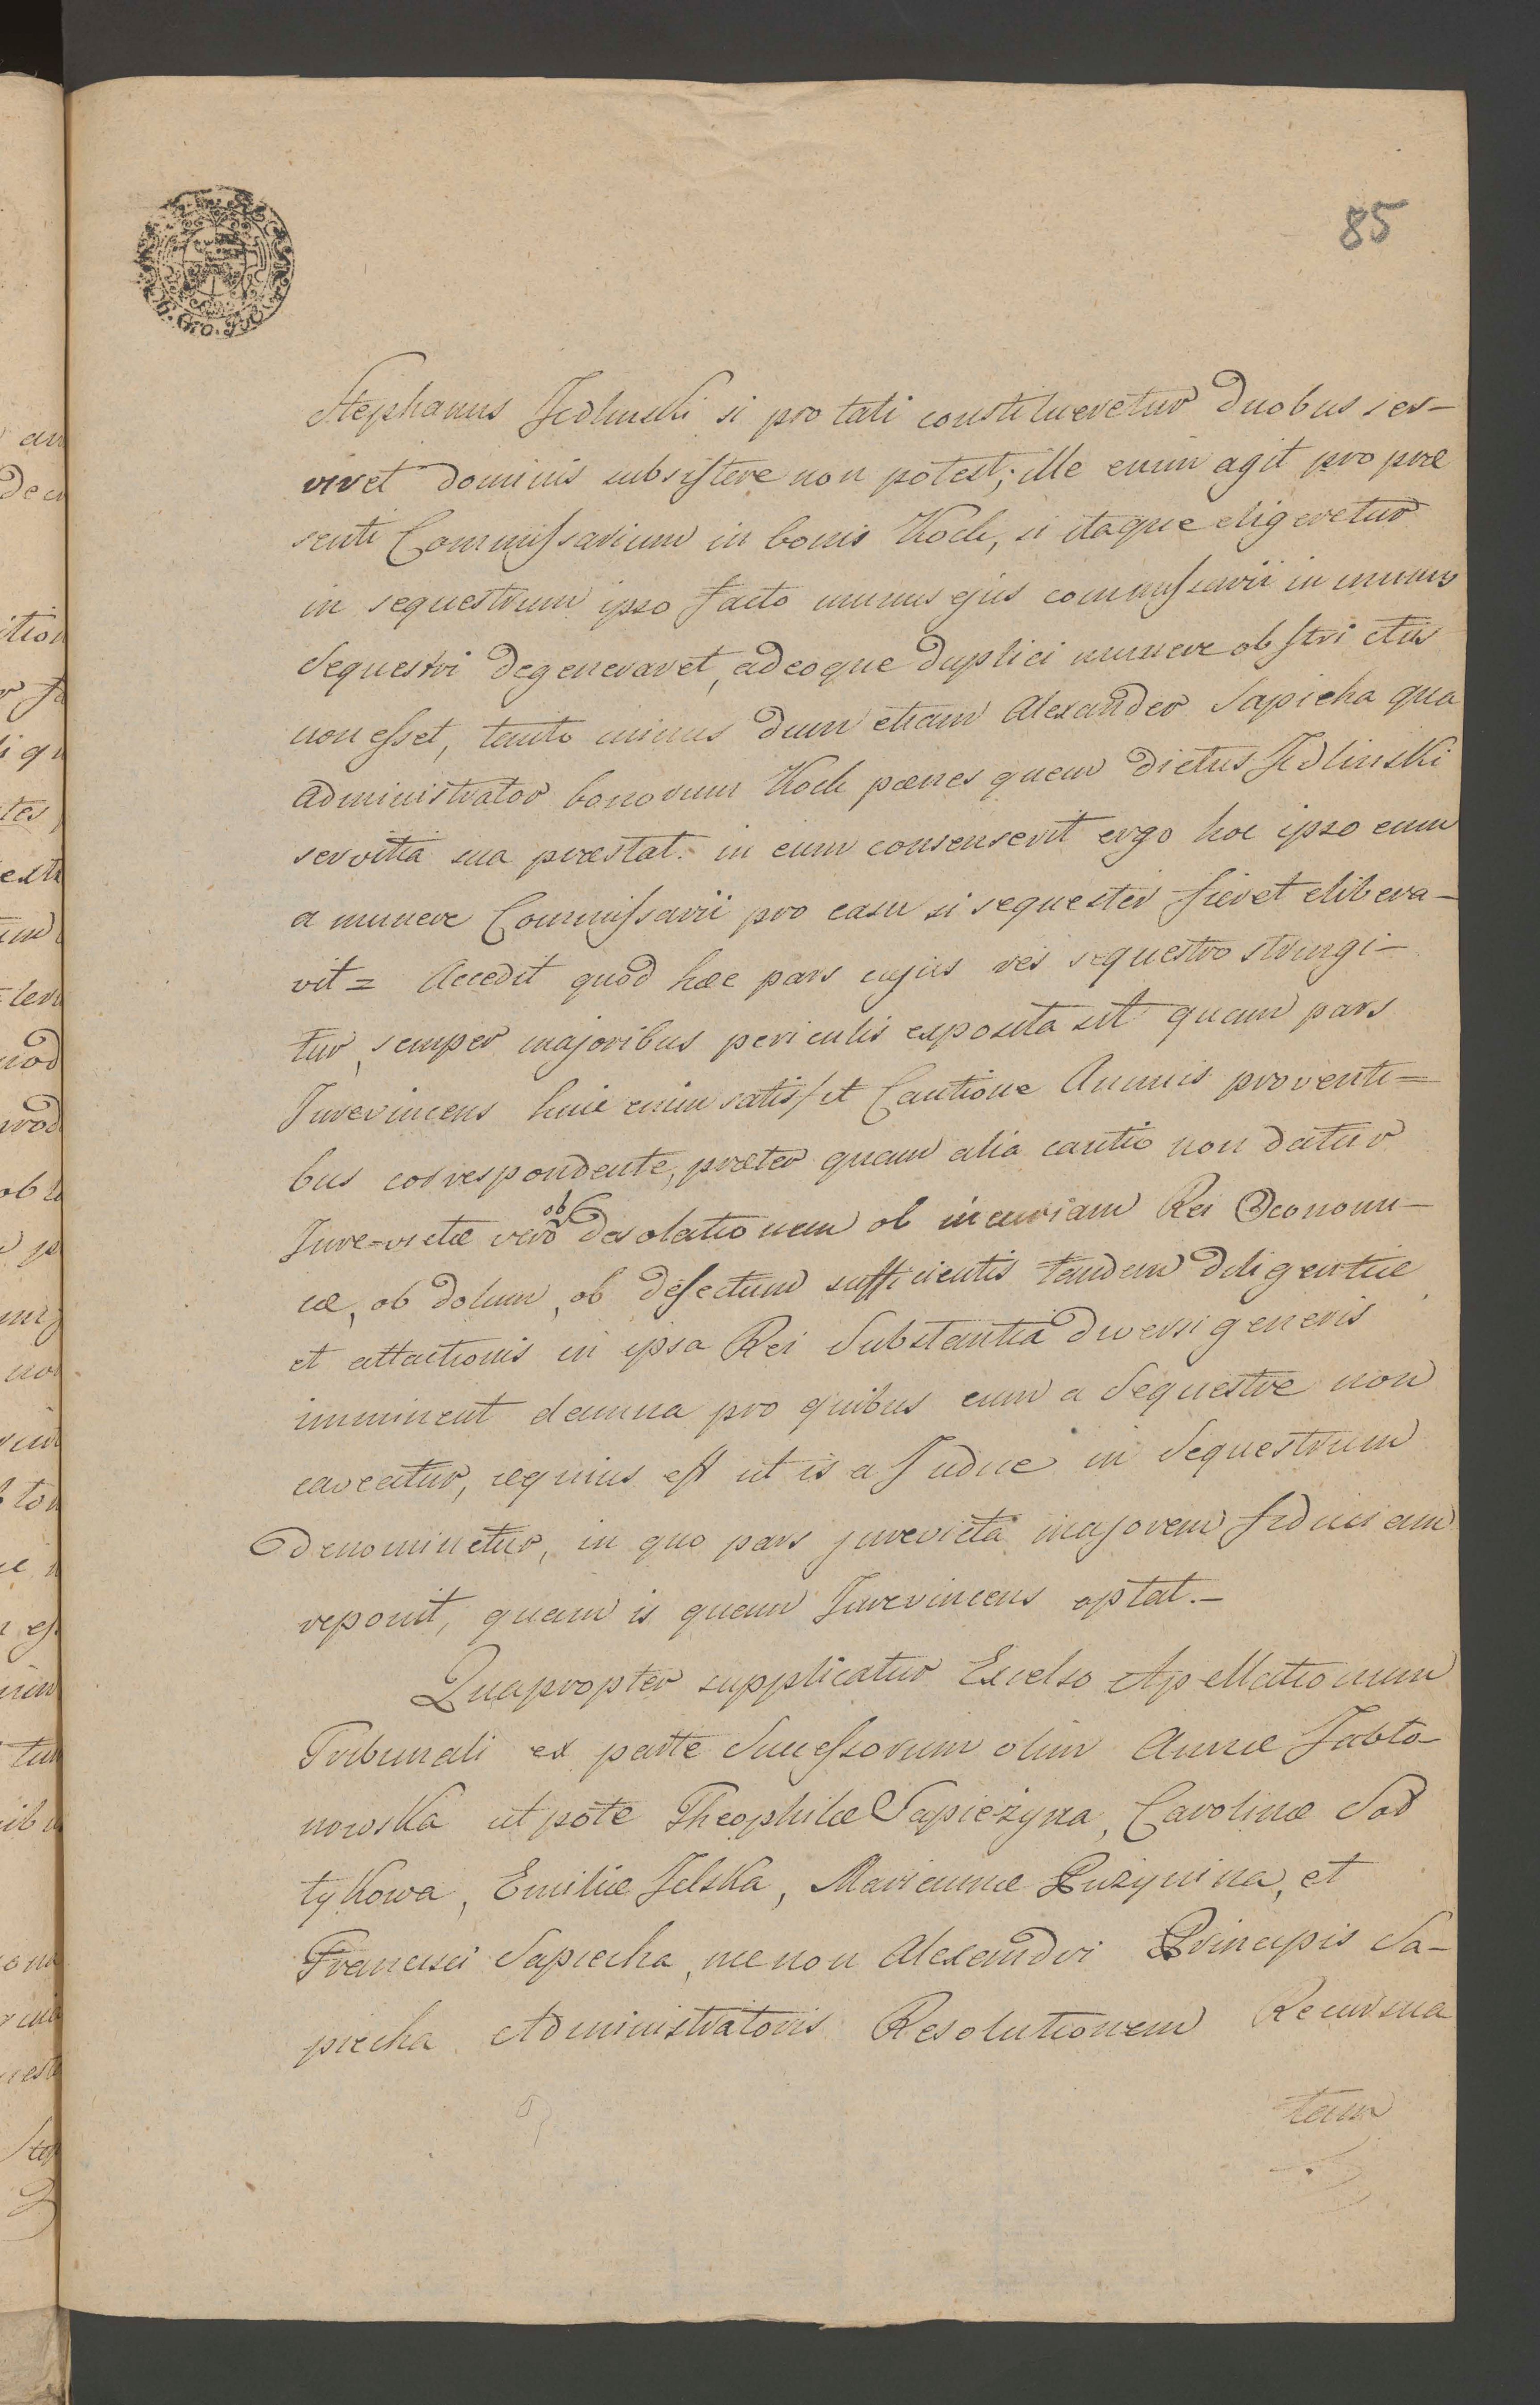 85
Stephanus Jedlinski si pro tali constitueretur duobus ser-
viret dominis subsistere non potest; ille enim agit pro præ
senti Commissarium in bonis Kock, si itaque eligeretur
in sequestrum ipso facto munus ejus commissarii in munus
Sequestri degeneraret, adeoque duplici munere obstrictus
non esset, tanto minus dum etiam Alexander Sapieha qua
administrator bonorum Kock pœnes quem dictus Jedlinski
servitia sua præstat. in eum consenserit ergo hoc ipso eum
a munere Commissarii pro casu si sequester fieret elibera-
vit = Accedit quod hæc pars cujus res sequestro stringi-
tur, semper majoribus periculis exposita sit quam pars
Jurevincens huic enim satisfit Cautione Annuis proventi=
bus correspondente, præter quam alia cautio non datur
Jure=victæ vero ob desolationem ob incuriam Rei Oeconomi-
cæ, ob dolum, ob defectum sufficientis tandem diligentiæ
et attactionis in ipsa Rei Substantia diversi generis
imminent damna pro quibus cum a Sequestre non
caveatur, æquius est ut is a Judice in Sequestrum
denominetur, in quo pars jurevicta majorem fiduciam
reponit, quam is quam Jurevincens optat.-
Quapropter supplicatur Excelso Apellationum
Tribunali ex parte Successorum olim Annæ Jabło-
nowska utpote Theophilæ Sapieżyna, Carolinæ Soł
tykowa, Emiliæ Jelska, Mariannæ Puzynina, et
Francisci Sapiecha, necnon Alexandri Principis Sa-
piecha Administratoris Resolutionem Recursua
tam